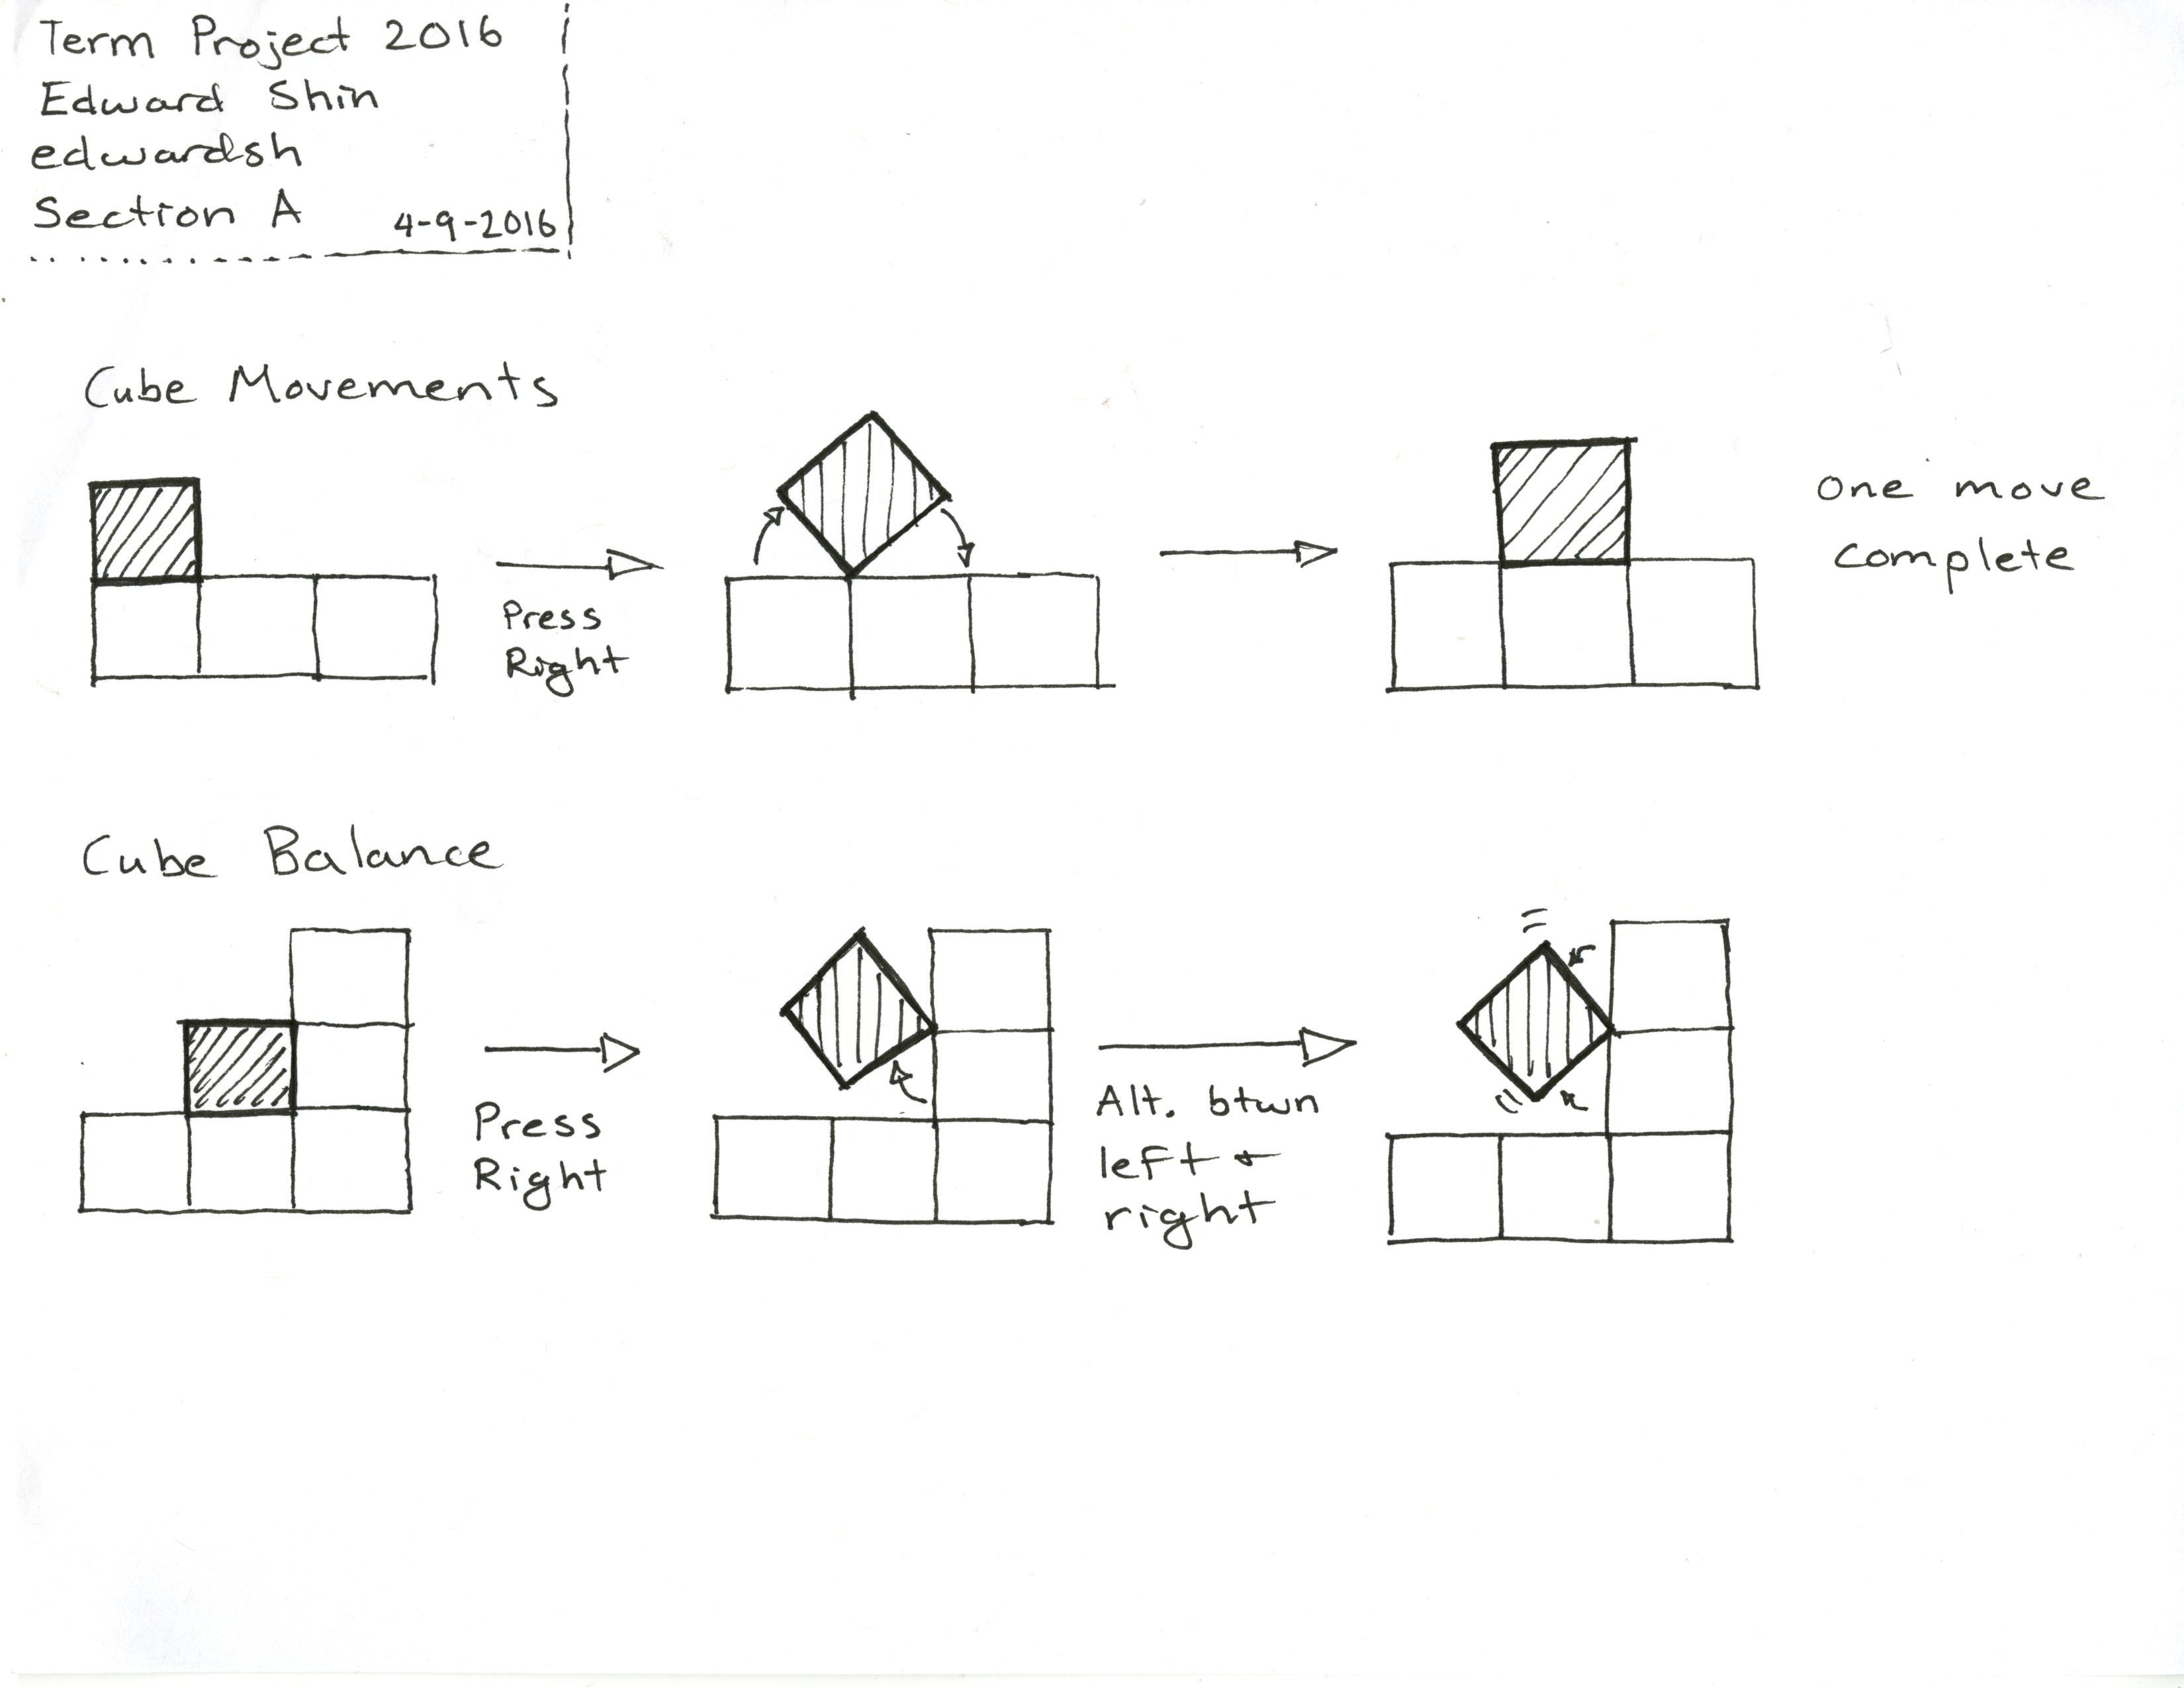 Term Project 2016
Edward Shin
edwardsh
Section A 4-9-2016
Cube Movements
Press
Right
One move
complete
Cube Balance
Press
Right
Alt. btwn
left &
right